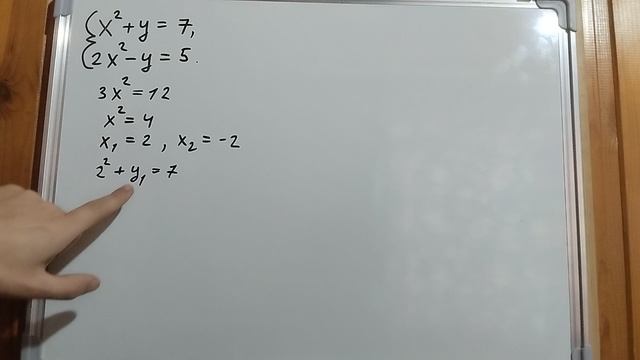 {x² + y = 7,
{2x² - y = 5.
3x² = 12
x² = 4
x₁ = 2, x₂ = -2
2² + y₁ = 7